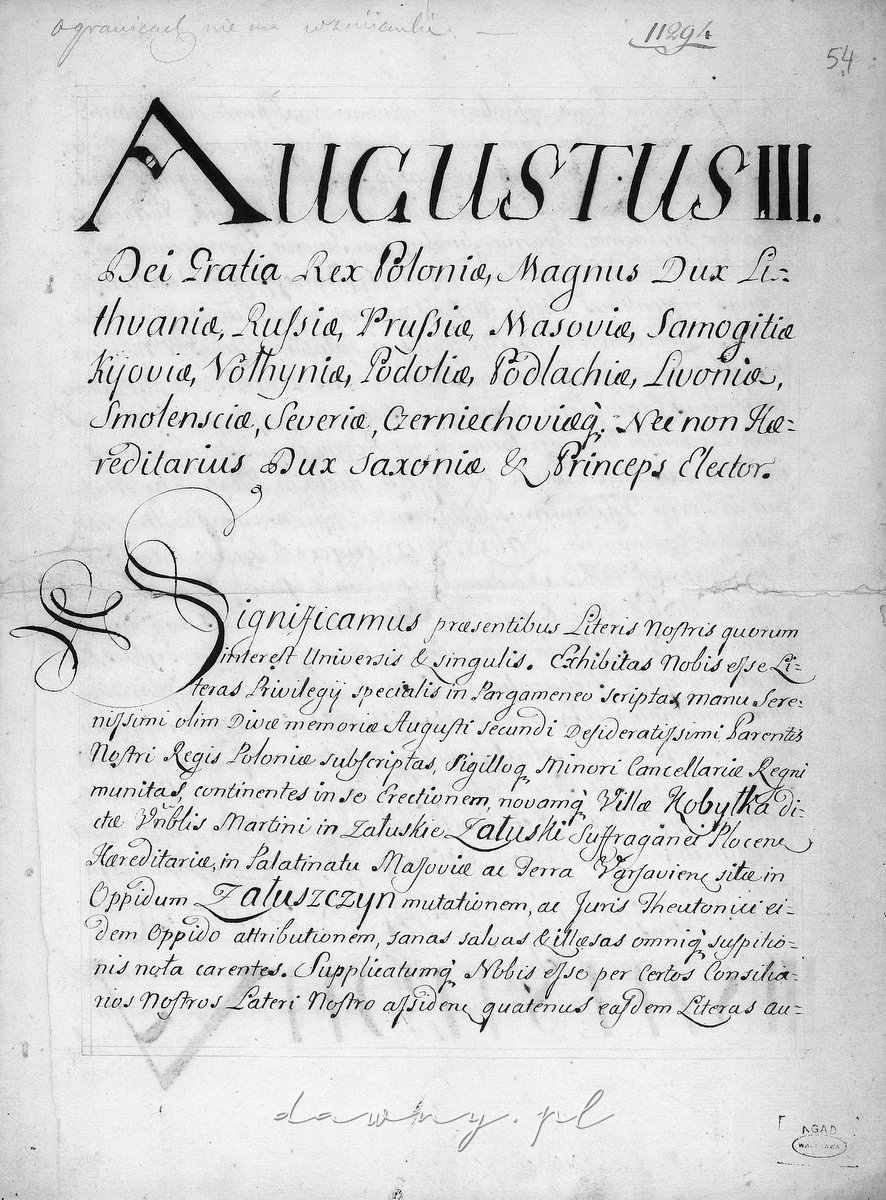 o granicach nie ma wzmianki. —
11294
54
AUGUSTUS III.
Dei Gratia Rex Poloniæ, Magnus Dux Li-
thvaniæ, Rußiæ, Prußiæ, Masoviæ, Samogitiæ
Kijoviæ, Volhyniæ, Podoliæ, Podlachiæ, Livoniæ,
Smolensciæ, Severiæ, Czerniechoviæq. Nec non Hæ-
reditarius Dux Saxoniæ & Princeps Elector.
Significamus præsentibus Literis Nostris quorum
interest Universis & singulis. Exhibitas Nobis eſse Li-
teras Privilegij specialis in Pargameneo scriptas, manu Sere-
niſsimi olim Divæ memoriæ Augusti secundi Desideratiſsimi Parentis
Nostri Regis Poloniæ subscriptas, Sigilloq, Minori Cancellariæ Regni
munitas, continentes in se Erectionem, novamq, Villæ Kobyłka di-
ctæ Vnblis Martini in Załuskie Załuski Suffraganei Plocen
Hæreditariæ, in Palatinatu Maſsoviæ ac Terra Varsavien sitæ in
Oppidum Załuszczyn mutationem, ac Juris Theutonici ei-
dem Oppido attributionem, sanas salvas & illæsas omniq, suspitio-
nis nota carentes. Supplicatumq, Nobis eſse per Certos Consilia-
rios Nostros Lateri Nostro aſsiden quatenus easdem Literas au-
dawny.pl
AGAD
WARSZAWA